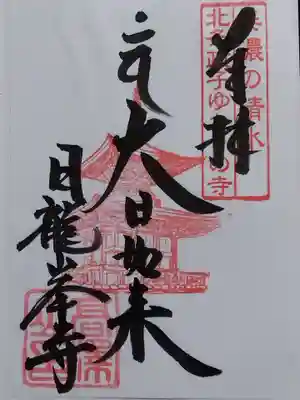 美濃の清水
北条政子ゆかりの寺
奉拝
大日如来
日龍峯寺